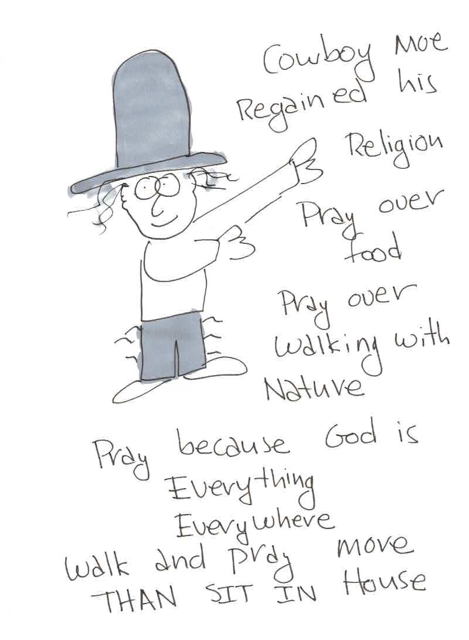 Cowboy Moe
Regained his
Religion
Pray over
food
Pray over
walking with
Nature
Pray because God is
Everything
Everywhere
walk and pray move
THAN SIT IN House